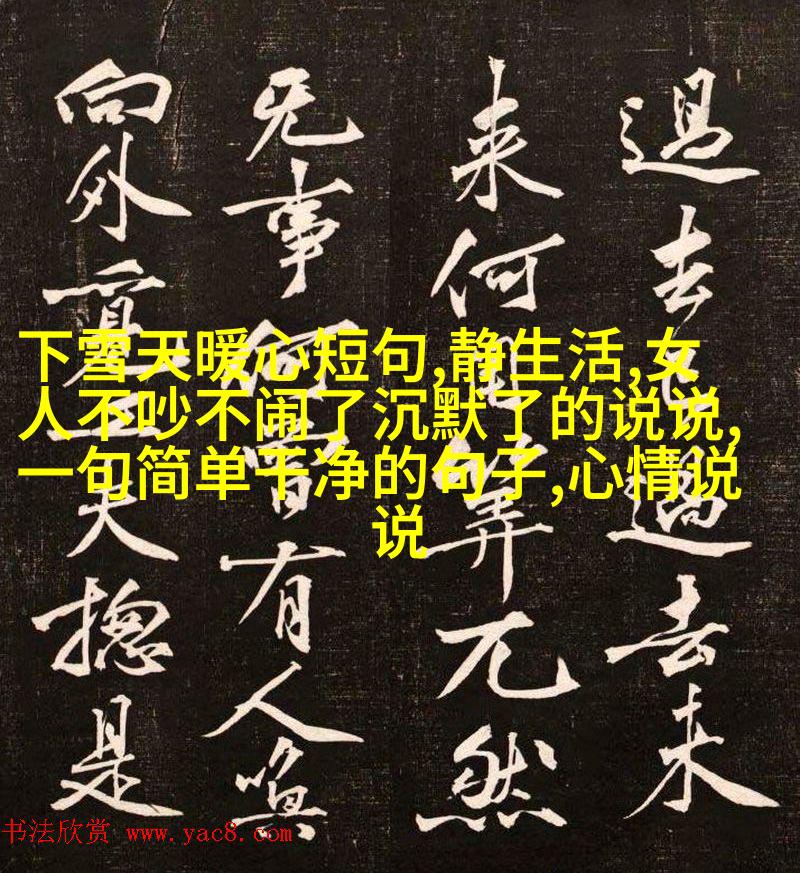 下雪天暖心短句,静生活,女
人不吵不闹了沉默了的说说,
一句简单干净的句子,心情说
说
過去過去未
来何筭兀然
无事何曾有人喚
向外夫揔是
书法欣赏 www.yac8.com